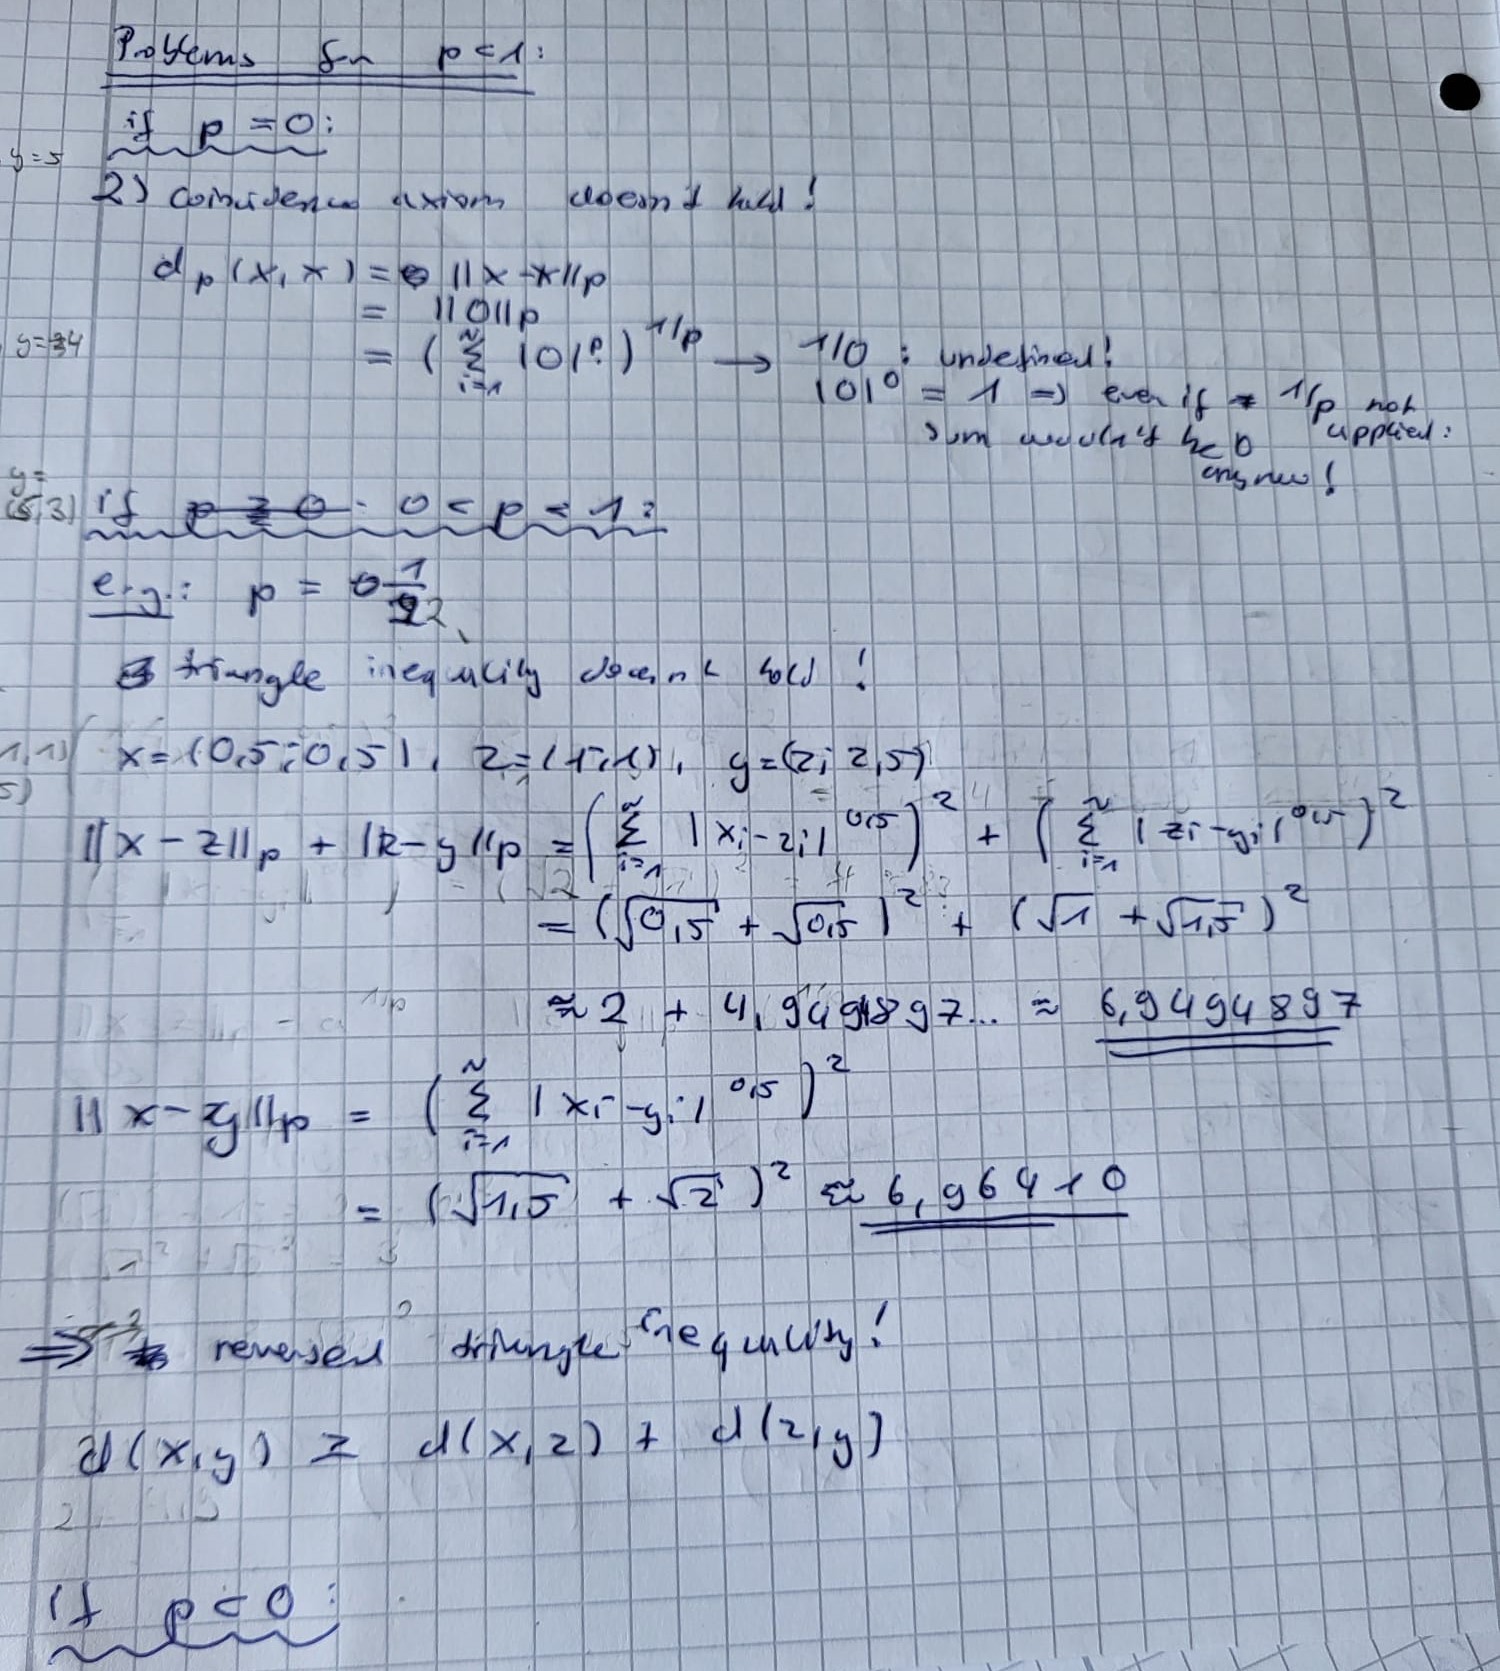 Problems for p < 1:
if p = 0:
y=5
2) Coincidence axiom doesn't hold!
d_p(x, x) = ||x - x||_p
= ||0||_p
y=34
= (∑_{i=1}^{n} |0|^p)^{1/p} → 1/0 : undefined!
|0|^0 = 1 => even if 1/p not
applied:
sum wouldn't be 0
anymore!
y=
(5,3)
if p ≥ 0 : 0 < p < 1:
e.g.: p = 1/2
triangle inequality doesn't hold!
1,1)
x = (0,5; 0,5), z = (1, 1), y = (2; 2,5)
5)
||x - z||_p + ||z - y||_p = (∑_{i=1}^{n} |x_i - z_i|^{0,5})^2 + (∑_{i=1}^{n} |z_i - y_i|^{0,5})^2
= (√0,5 + √0,5)^2 + (√1 + √1,5)^2
≈ 2 + 4,9494897... ≈ 6,9494897
||x - y||_p = (∑_{i=1}^{n} |x_i - y_i|^{0,5})^2
= (√1,5 + √2)^2 ≈ 6,96410
=> reversed triangle inequality!
d(x,y) ≥ d(x,z) + d(z,y)
if p < 0: